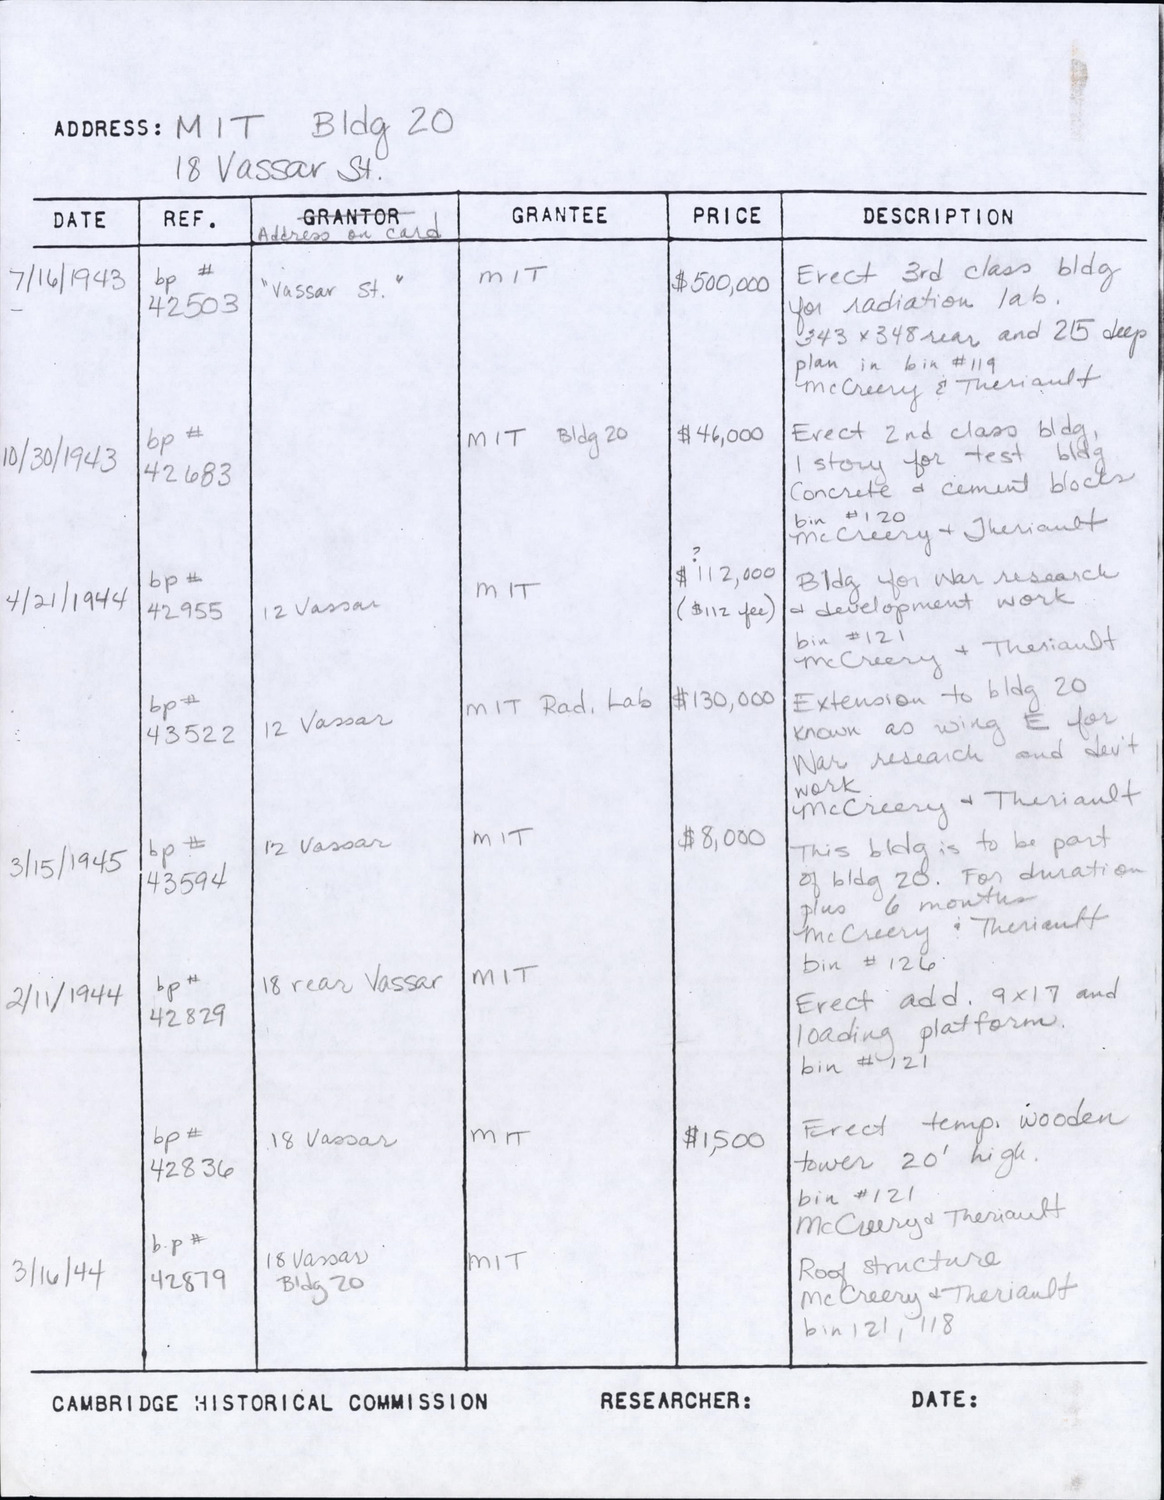 ADDRESS: MIT Bldg 20
18 Vassar St.
DATE REF. GRANTOR GRANTEE PRICE DESCRIPTION
Address on card
7/16/1943 bp # 42503 "Vassar St." MIT $500,000 Erect 3rd class bldg
for radiation lab.
343 x 348 rear and 215 deep
plan in bin #119
McCreery & Theriault
10/30/1943 bp # 42683 MIT Bldg 20 $46,000 Erect 2nd class bldg,
1 story for test bldg
Concrete & cement blocks
bin #120
McCreery + Theriault
?
4/21/1944 bp # 42955 12 Vassar MIT $112,000 Bldg for War research
($112 fee) & development work
bin #121
McCreery + Theriault
bp # 43522 12 Vassar MIT Rad. Lab $130,000 Extension to bldg 20
known as wing E for
War research and dev't
work
McCreery + Theriault
3/15/1945 bp # 43594 12 Vassar MIT $8,000 This bldg is to be part
of bldg 20. For duration
plus 6 months
McCreery & Theriault
bin #126
2/11/1944 bp # 42829 18 rear Vassar MIT Erect add. 9x17 and
loading platform.
bin #121
bp # 42836 18 Vassar MIT $1,500 Erect temp. wooden
tower 20' high.
bin #121
McCreery & Theriault
3/16/44 b.p # 42879 18 Vassar MIT Roof structure
Bldg 20 McCreery & Theriault
bin 121, 118
CAMBRIDGE HISTORICAL COMMISSION RESEARCHER: DATE: